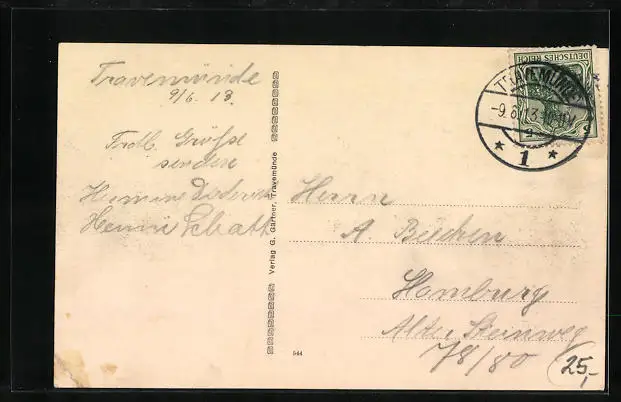 Travemünde
9/6. 13.
Frdl. Grüße
senden
Henni Schatt
Verlag G. Gärtner, Travemünde
544
DEUTSCHES REICH
TRAVEMÜNDE
-9.6.13
* 1 *
Herrn
A.
Hamburg
Alter Steinweg
78/80
25,-